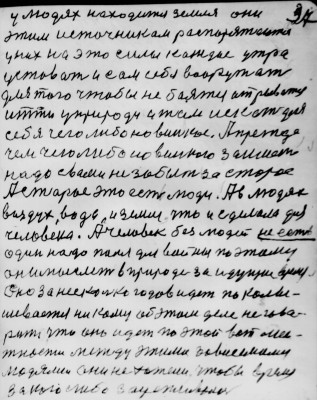 37
у людях находится земля они
этим источникам распоряжаются
у них на это силы каждое утро
уставать и сам себя вооружать
для того чтобы не баятся
итти у природу и там искать для
себя чего либо новинкое. А прежде
чем чего либо новинкого занимать
надо с вами не забыть за старое
А старое это есть люди. А в людях
воздух вода и земля что и сделала для
человека. А человек без людей не есть
один надо поля для
он и мыслит в природе за идущую
Оно за несколко годов идет по колы-
шивается никому об этом деле не гова-
рить что оно идет по этой вот мес-
тности между этими зависемами
людями они не хотели чтобы время
за кого либо